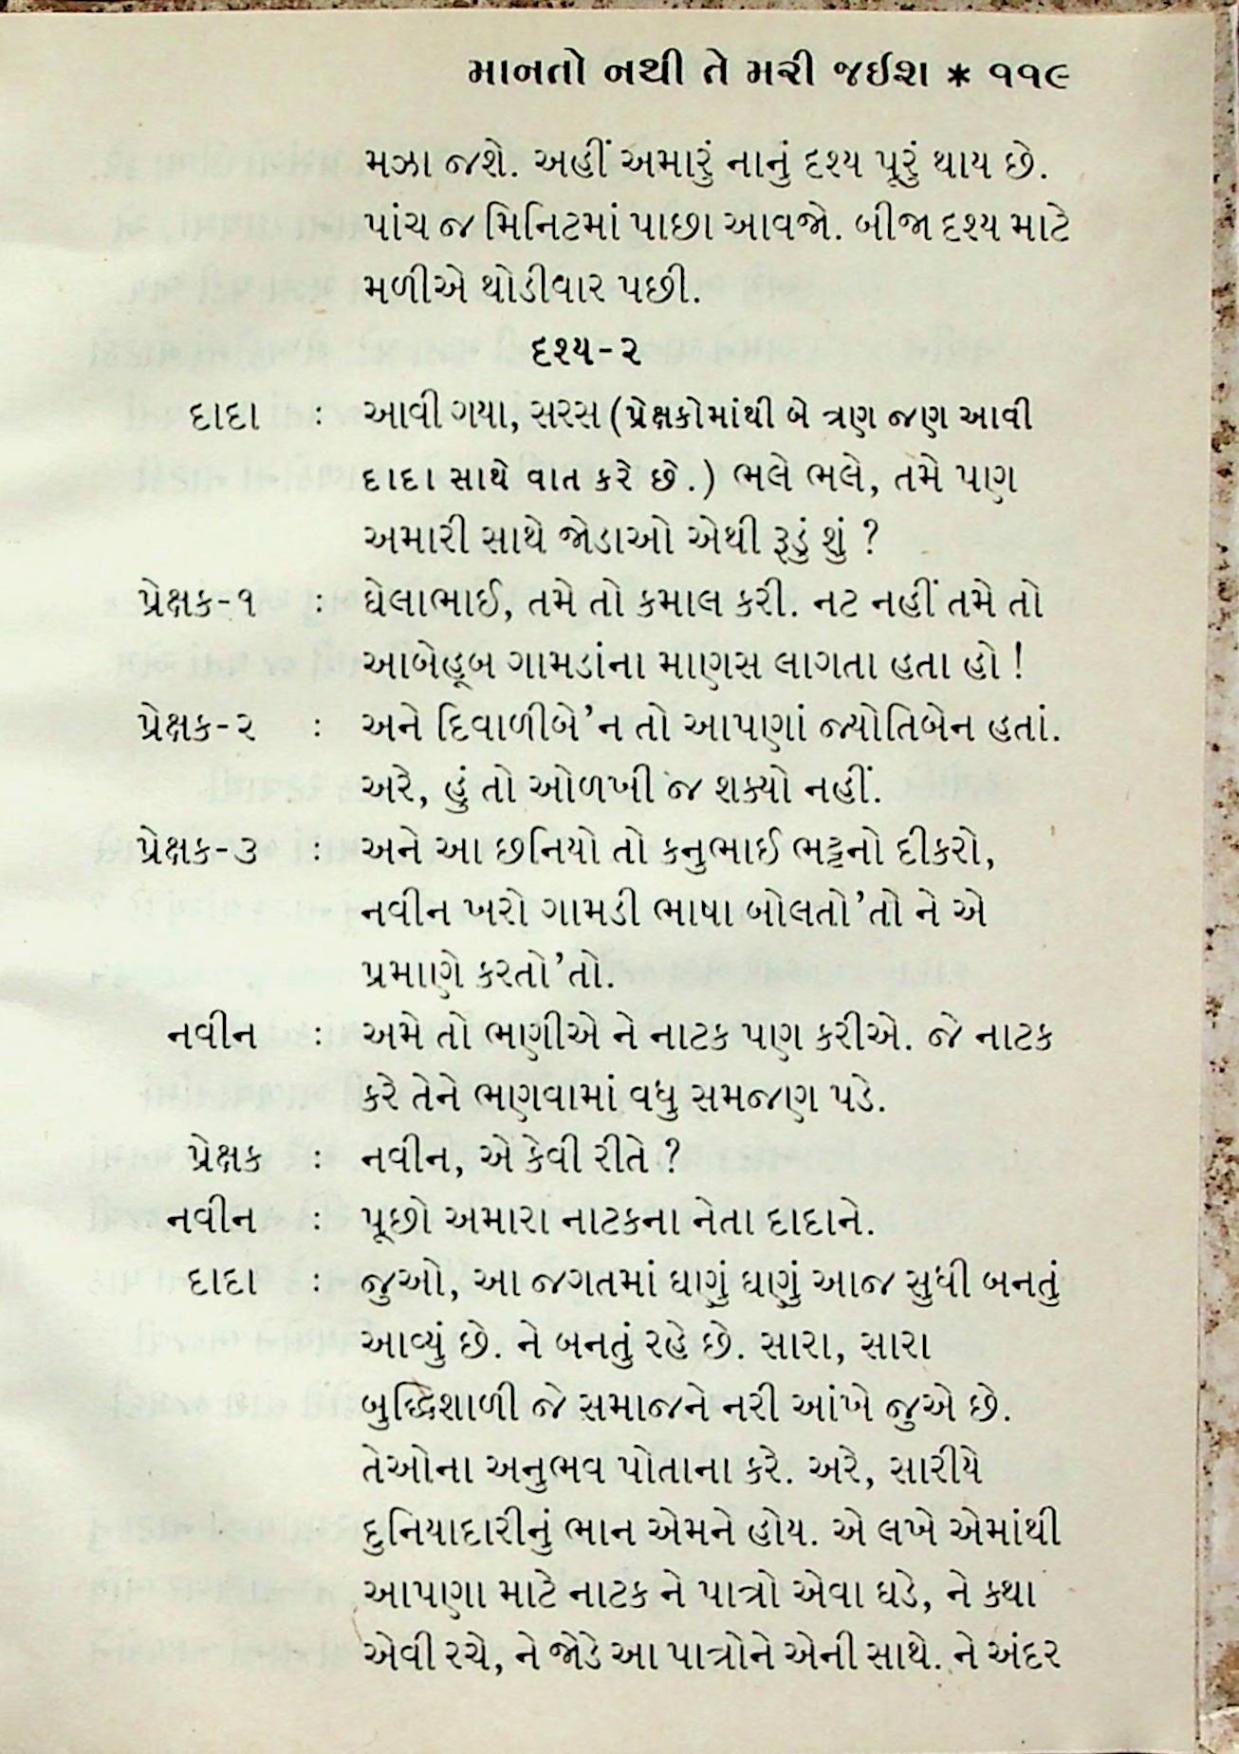 માનતો નથી તે મરી જઈશ * ૧૧૯
મઝા જશે. અહીં અમારું નાનું દૃશ્ય પૂરું થાય છે.
પાંચ જ મિનિટમાં પાછા આવજો. બીજા દૃશ્ય માટે
મળીએ થોડીવાર પછી.
દૃશ્ય-૨
દાદા : આવી ગયા, સરસ (પ્રેક્ષકોમાંથી બે ત્રણ જણ આવી
દાદા સાથે વાત કરે છે.) ભલે ભલે, તમે પણ
અમારી સાથે જોડાઓ એથી રૂડું શું ?
પ્રેક્ષક-૧ : ઘેલાભાઈ, તમે તો કમાલ કરી. નટ નહીં તમે તો
આબેહૂબ ગામડાંના માણસ લાગતા હતા હો !
પ્રેક્ષક-૨ : અને દિવાળીબે'ન તો આપણાં જ્યોતિબેન હતાં.
અરે, હું તો ઓળખી જ શક્યો નહીં.
પ્રેક્ષક-૩ : અને આ છનિયો તો કનુભાઈ ભટ્ટનો દીકરો,
નવીન ખરો ગામડી ભાષા બોલતો'તો ને એ
પ્રમાણે કરતો'તો.
નવીન : અમે તો ભણીએ ને નાટક પણ કરીએ. જે નાટક
કરે તેને ભણવામાં વધુ સમજણ પડે.
પ્રેક્ષક : નવીન, એ કેવી રીતે ?
નવીન : પૂછો અમારા નાટકના નેતા દાદાને.
દાદા : જુઓ, આ જગતમાં ઘણું ઘણું આજ સુધી બનતું
આવ્યું છે. ને બનતું રહે છે. સારા, સારા
બુદ્ધિશાળી જે સમાજને નરી આંખે જુએ છે.
તેઓના અનુભવ પોતાના કરે. અરે, સારીયે
દુનિયાદારીનું ભાન એમને હોય. એ લખે એમાંથી
આપણા માટે નાટક ને પાત્રો એવા ઘડે, ને કથા
એવી રચે, ને જોડે આ પાત્રોને એની સાથે. ને અંદર